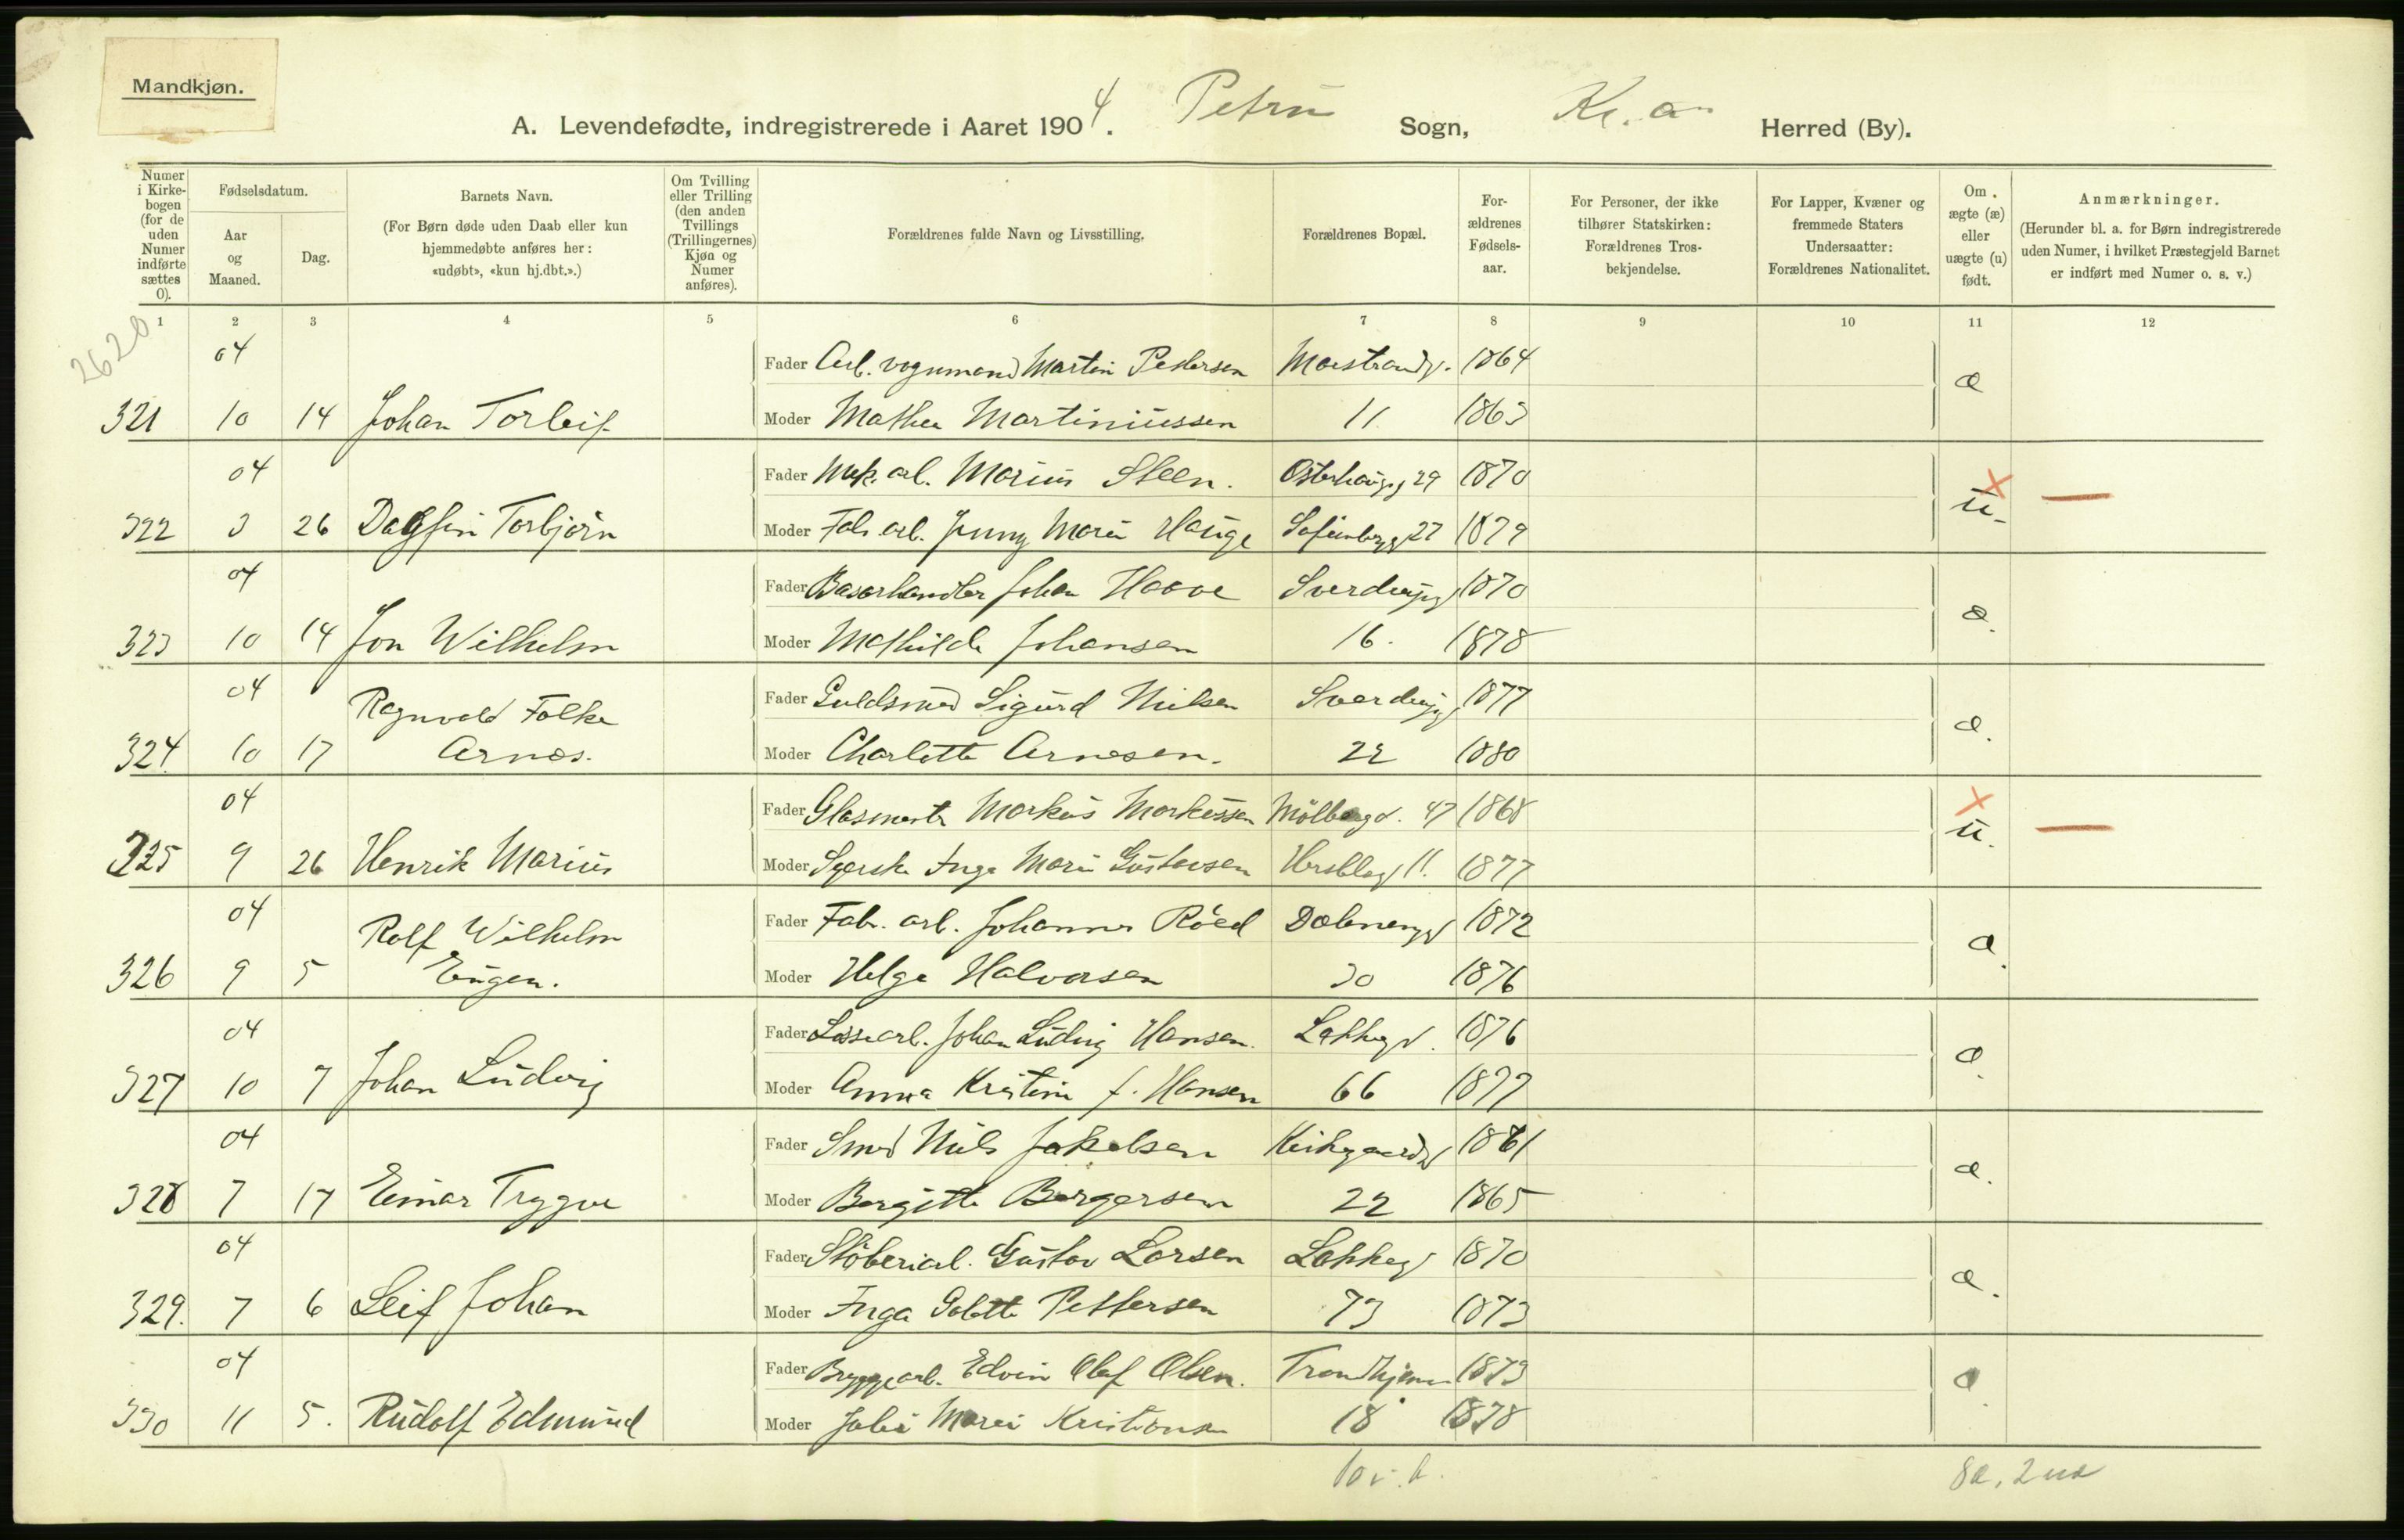 Mandkjøn.
A. Levendefødte, indregistrerede i Aaret 1904. Petrus Sogn, Kr.a Herred (By).
Numer i Kirkebogen (for de uden Numer indførte sættes 0).
Fødselsdatum.
Aar og Maaned.
Dag.
Barnets Navn.
(For Børn døde uden Daab eller kun hjemmedøbte anføres her: «udøbt», «kun hj.dbt.».)
Om Tvilling eller Trilling (den anden Tvillings (Trillingernes) Kjøn og Numer anføres).
Forældrenes fulde Navn og Livsstilling.
Forældrenes Bopæl.
Forældrenes Fødselsaar.
For Personer, der ikke tilhører Statskirken: Forældrenes Trosbekjendelse.
For Lapper, Kvæner og fremmede Staters Undersaatter: Forældrenes Nationalitet.
Om ægte (æ) eller uægte (u) født.
Anmærkninger.
(Herunder bl. a. for Børn indregistrerede uden Numer, i hvilket Præstegjeld Barnet er indført med Numer o. s. v.)
1 2 3 4 5 6 7 8 9 10 11 12
2620
04 Fader Arb. vognmand Martin Pettersen Marstrandg. 1864 æ
321 10 14 Johan Torleif Moder Mathea Martiniussen 11 1863
04 Fader Mek. arb. Marius Steen. Osterhausg 29 1870 u.
322 3 26 Dagfin Torbjörn Moder Fab. arb. Jenny Marie Hauge Sofienbergg 27 1879
04 Fader Basarhandler Johan Hoove Sverdrupsg 1870 æ.
323 10 14 Jon Wilhelm Moder Mathilde Johansen 16. 1878
04 Ragnvald Folke Fader Guldsmed Sigurd Nielsen Sverdrupsg 1877 æ.
324 10 17 Arnes. Moder Charlotte Arnesen. 22 1880
04 Fader Glasmester Markus Markussen Mölbergd. 47 1868 u.
325 9 26 Henrik Marius Moder Syerske Inga Marie Gustavsen Herslebsg 11. 1877
04 Rolf Wilhelm Fader Fabr. arb. Johannes Röed Dælenengg 1872 æ.
326 9 5 Eugen. Moder Helga Halvorsen 30 1876
04 Fader Lossearb. Johan Ludvig Hansen. Lakkegd. 1876 æ.
327 10 7 Johan Ludvig Moder Anna Kristine f. Hansen 66 1877
04 Fader Smed Nils Jakobsen Kirkegaardsg 1861 æ.
328 7 17 Einar Trygve Moder Bergitte Bergersen 22 1865
04 Fader Stöberiarb. Gustav Larsen Lakkeg 1870 æ.
329. 7 6 Leif Johan Moder Inga Golette Pettersen 73 1873
04 Fader Bryggearb. Edvin Olaf Olsen. Trondhjemsv 1873 æ.
330 11 5. Rudolf Edmund Moder Julie Marie Kristiansen 18 1878
10 i. b. 8æ, 2uæ